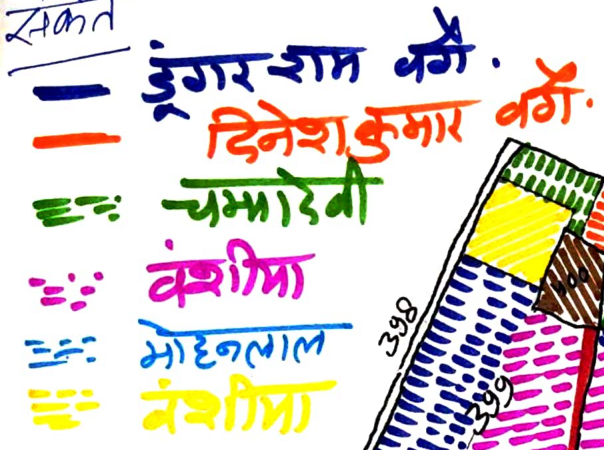 संकेत
डूंगर राम वगै.
दिनेश कुमार वगै.
चम्पादेवी
वंशीया
मोहनलाल
वंशीया
400
398
399